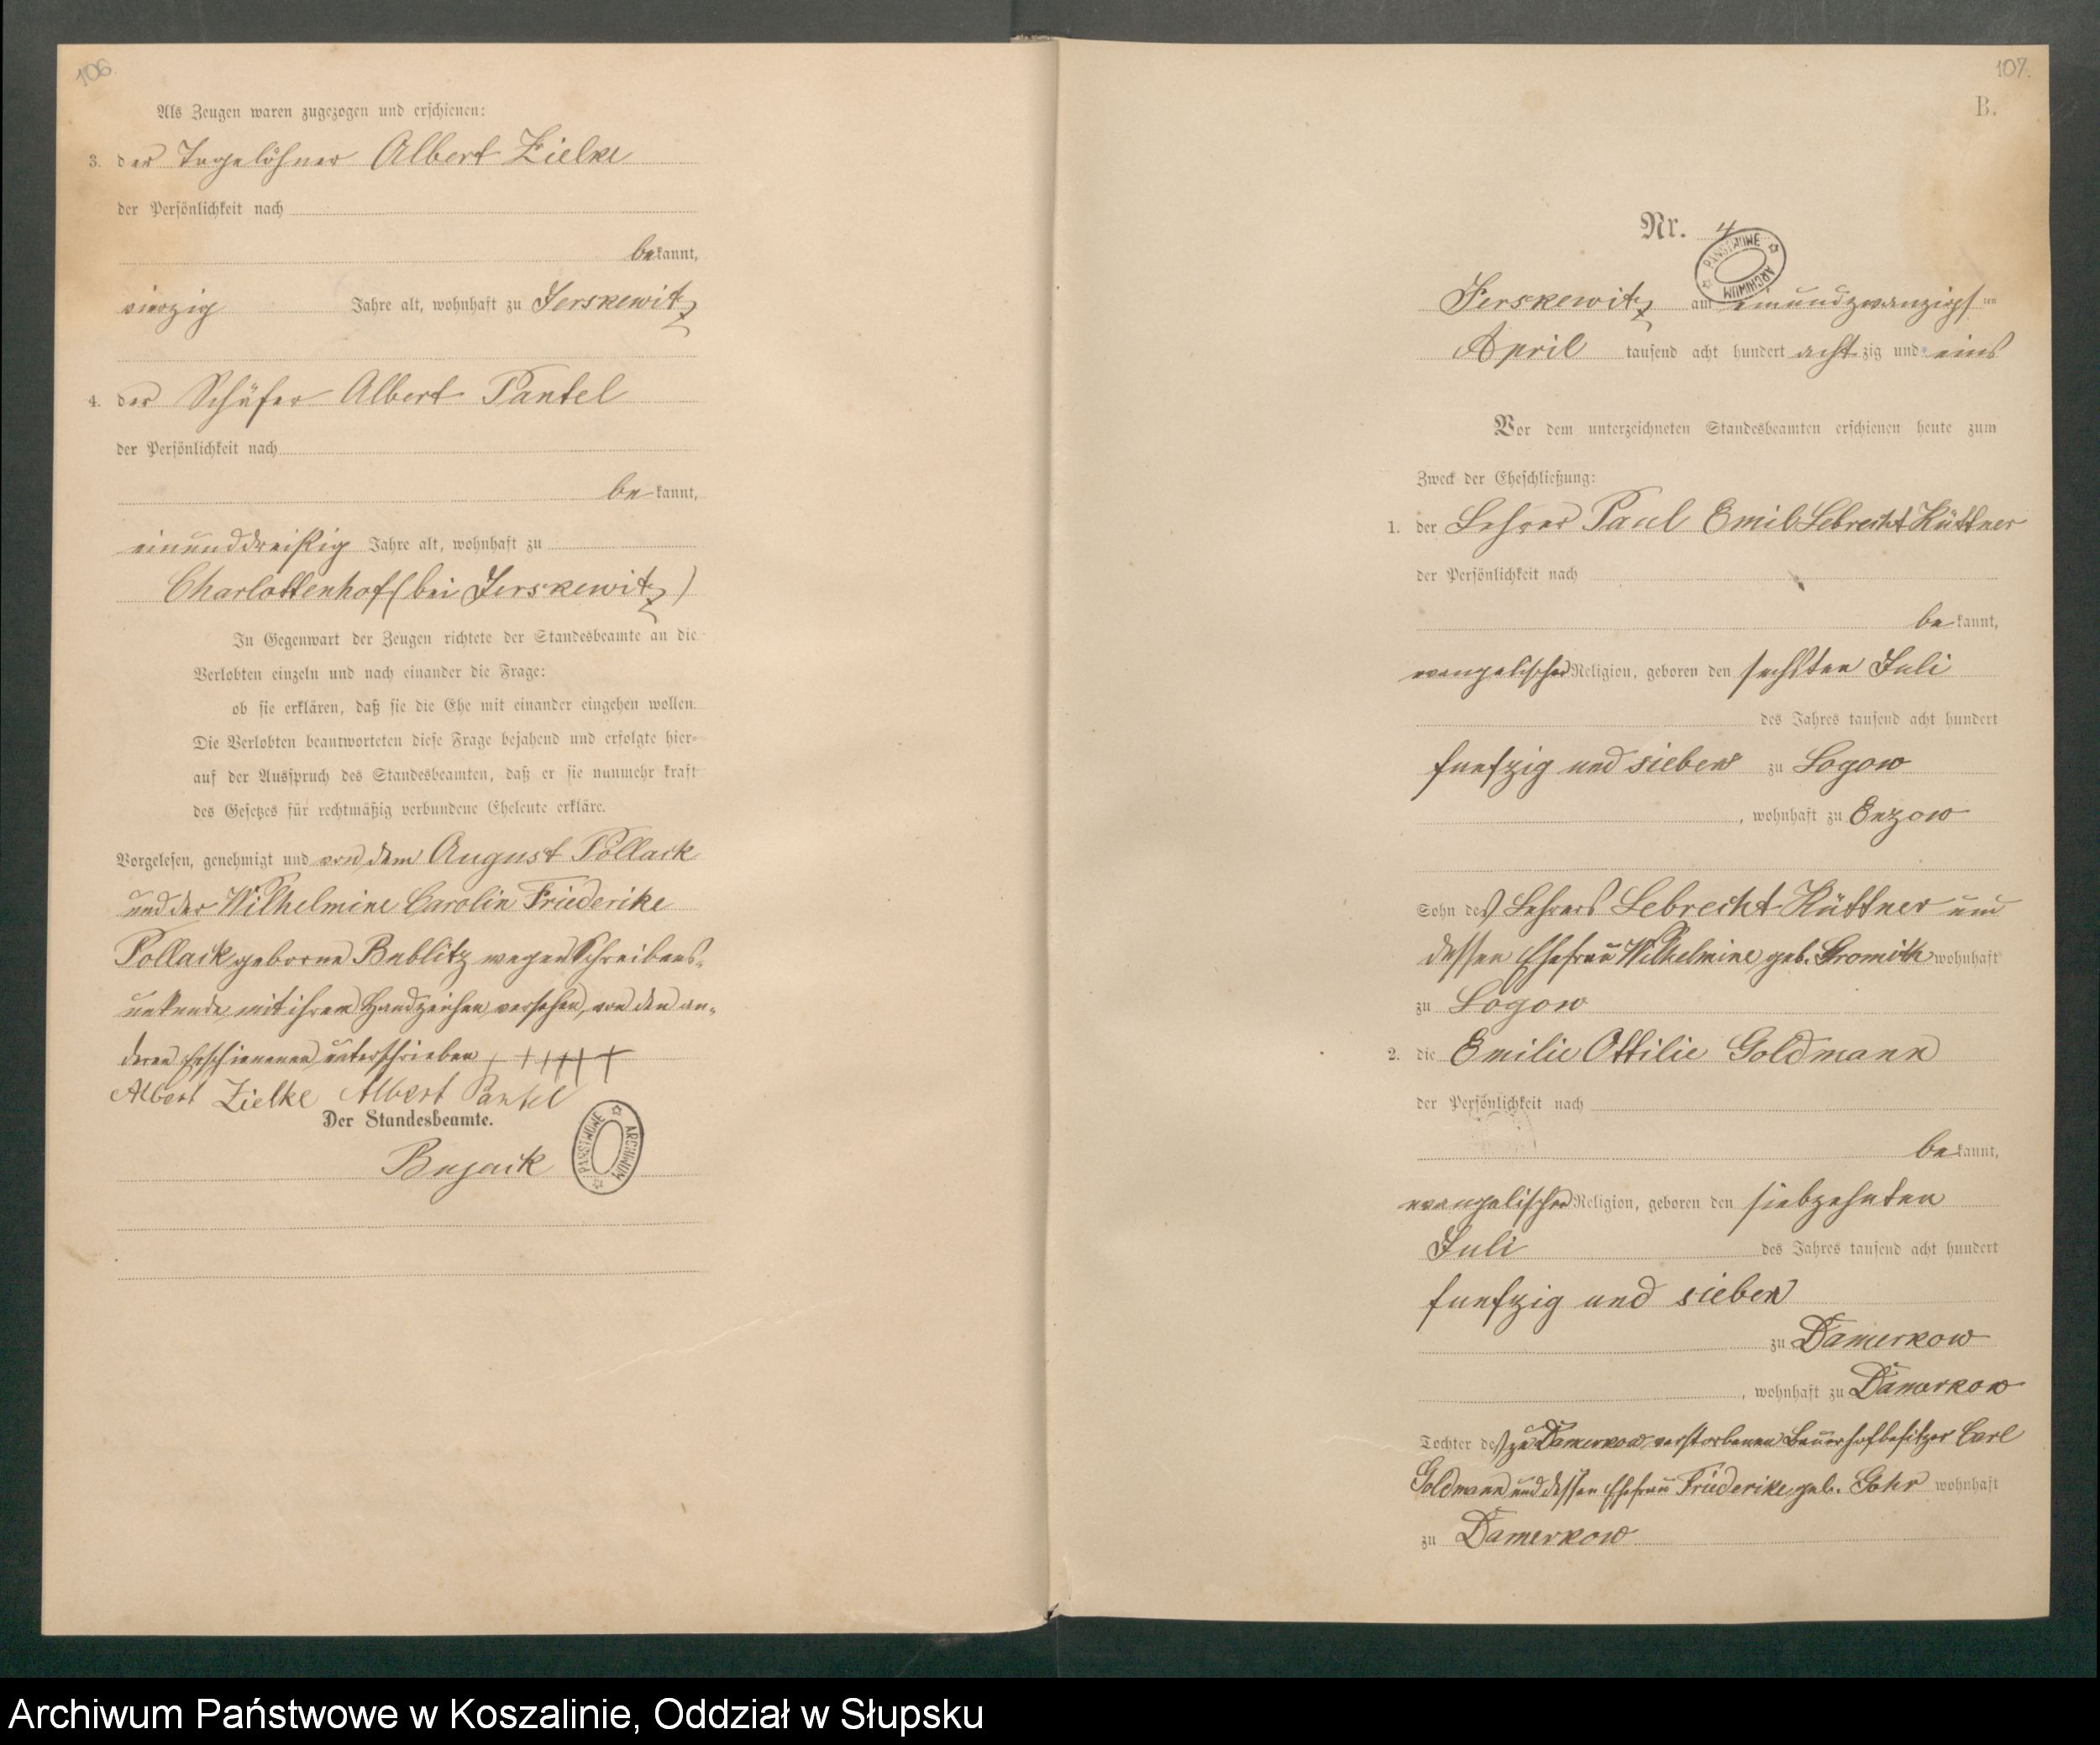 106.
Als Zeugen waren zugezogen und erschienen:
3. der Tagelöhner Albert Zielke
der Persönlichkeit nach
bekannt,
vierzig Jahre alt, wohnhaft zu Jerskewitz
4. der Schäfer Albert Pantel
der Persönlichkeit nach
bekannt,
einunddreißig Jahre alt, wohnhaft zu
Charlottenhof (bei Jerskewitz)
In Gegenwart der Zeugen richtete der Standesbeamte an die
Verlobten einzeln und nach einander die Frage:
ob sie erklären, daß sie die Ehe mit einander eingehen wollen.
Die Verlobten beantworteten diese Frage bejahend und erfolgte hier-
auf der Ausspruch des Standesbeamten, daß er sie nunmehr kraft
des Gesetzes für rechtmäßig verbundene Eheleute erkläre.
Vorgelesen, genehmigt und von dem August Pollack
und der Wilhelmine Carolin Friederike
Pollack geborne Bublitz wegen Schreibens-
unkunde mit ihrem Handzeichen versehen, von den an-
deren Erschienenen unterschrieben + + + + + +
Albert Zielke Albert Pantel
Der Standesbeamte.
Bujack
PAŃSTWOWE ARCHIWUM
107.
B.
Nr. 4
PAŃSTWOWE ARCHIWUM
Jerskewitz am einundzwanzigsten
April tausend acht hundert achtzig und eins
Vor dem unterzeichneten Standesbeamten erschienen heute zum
Zweck der Eheschließung:
1. der Lehrer Paul Emil Lebrecht Küttner
der Persönlichkeit nach
bekannt,
evangelischer Religion, geboren den sechsten Juli
des Jahres tausend acht hundert
funfzig und sieben zu Logow
, wohnhaft zu Enzow
Sohn des Lehrers Lebrecht Küttner und
dessen Ehefrau Wilhelmine geb. wohnhaft
zu Logow
2. die Emilie Ottilie Goldmann
der Persönlichkeit nach
bekannt,
evangelischer Religion, geboren den siebzehnten
Juli des Jahres tausend acht hundert
funfzig und sieben
zu Damerkow
, wohnhaft zu Damerkow
Tochter des zu Damerkow verstorbenen Bauerhofbesitzer Carl
Goldmann und dessen Ehefrau Friederike geb. Gohr wohnhaft
zu Damerkow
Archiwum Państwowe w Koszalinie, Oddział w Słupsku